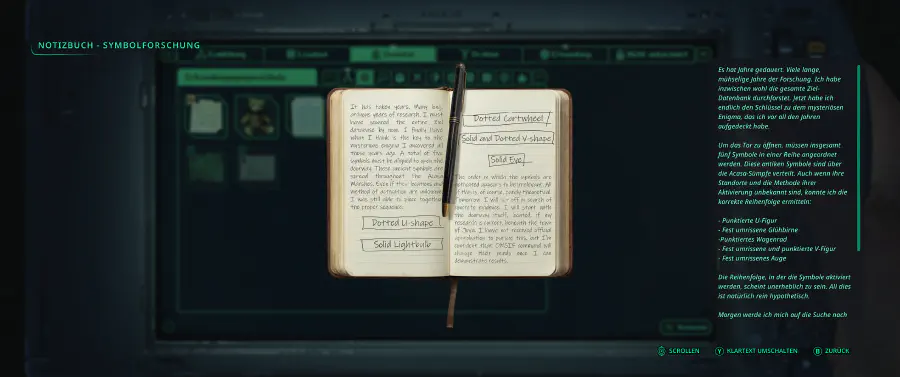 NOTIZBUCH - SYMBOLFORSCHUNG
It has taken years. Many long,
arduous years of research. I must
have scoured the entire Ziel
database by now. I finally have
what I think is the key to the
mysterious enigma I uncovered all
those years ago. A total of five
symbols must be aligned to open the
doorway. These ancient symbols are
spread throughout the Acasa
Marshes. Even if their locations and
method of activation are unknown,
I was still able to piece together
the proper sequence:
Dotted U-shape
Solid Lightbulb
Dotted Cartwheel
Solid and Dotted V-shape
Solid Eye
The order in which the symbols are
activated appears to be irrelevant. All
of this is, of course, purely theoretical.
Tomorrow I will set off in search of
concrete evidence. I will start with
the doorway itself, located, if my
research is correct, beneath the town
Es hat Jahre gedauert. Viele lange,
mühselige Jahre der Forschung. Ich habe
inzwischen wohl die gesamte Ziel-
Datenbank durchforstet. Jetzt habe ich
endlich den Schlüssel zu dem mysteriösen
Enigma, das ich vor all den Jahren
aufgedeckt habe.
Um das Tor zu öffnen, müssen insgesamt
fünf Symbole in einer Reihe angeordnet
werden. Diese antiken Symbole sind über
die Acasa-Sümpfe verteilt. Auch wenn ihre
Standorte und die Methode ihrer
Aktivierung unbekannt sind, konnte ich die
korrekte Reihenfolge ermitteln:
- Punktierte U-Figur
- Fest umrissene Glühbirne
-Punktiertes Wagenrad
- Fest umrissene und punktierte V-Figur
- Fest umrissenes Auge
Die Reihenfolge, in der die Symbole aktiviert
werden, scheint unerheblich zu sein. All dies
ist natürlich rein hypothetisch.
Morgen werde ich mich auf die Suche nach
SCROLLEN
Y KLARTEXT UMSCHALTEN
B ZURÜCK